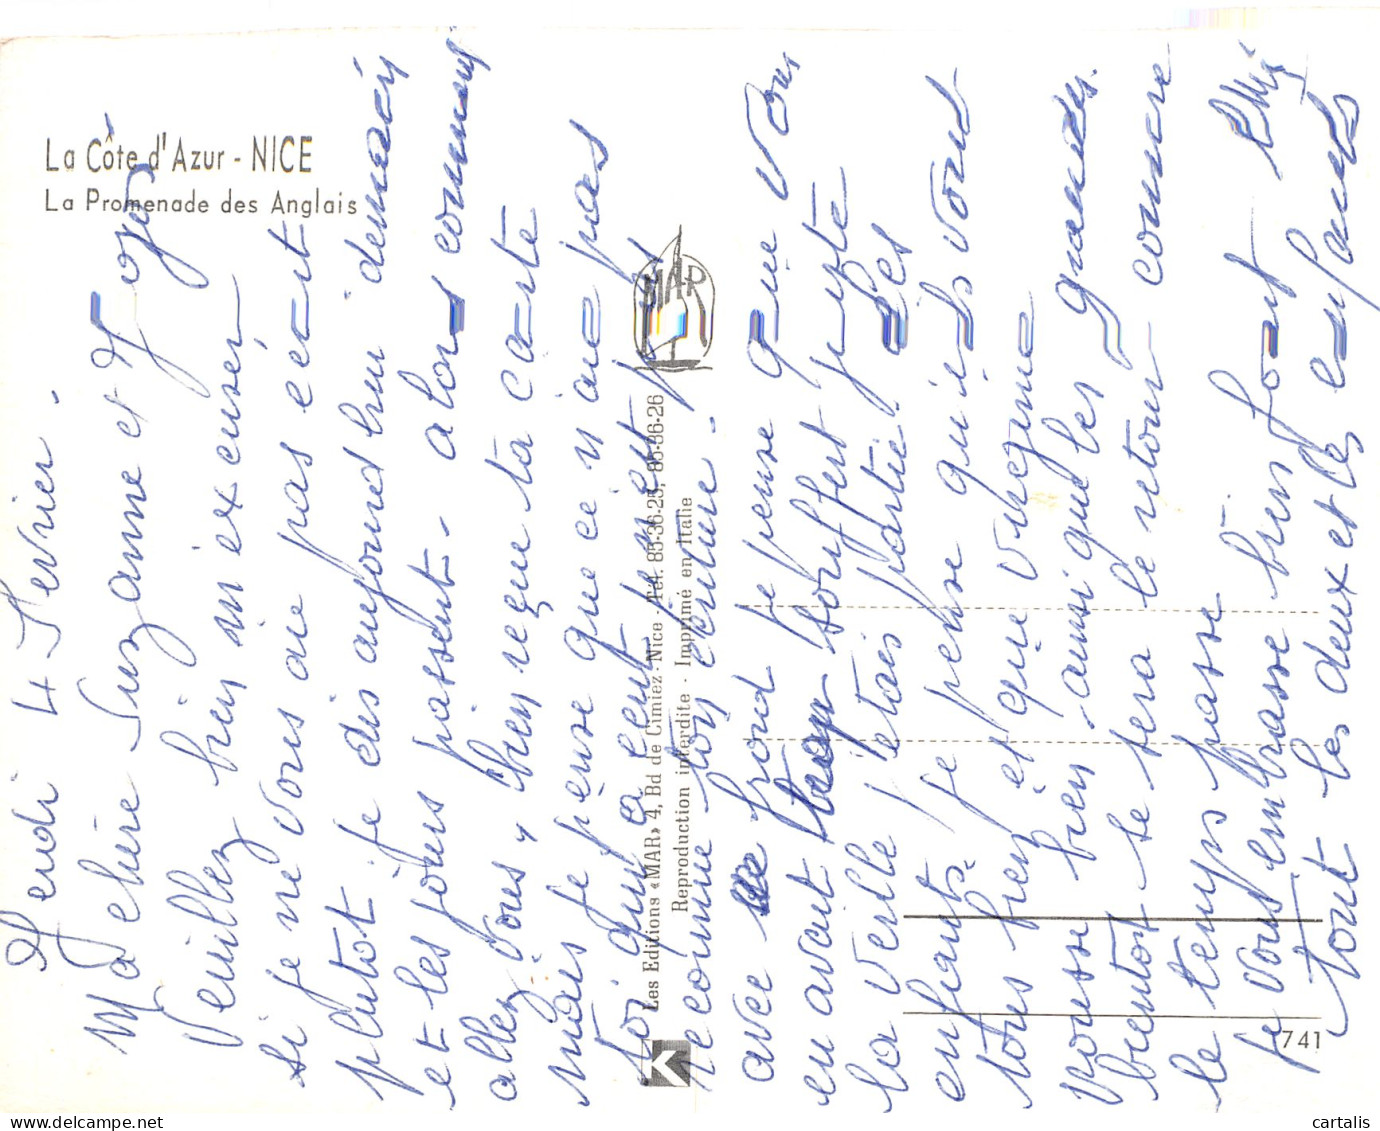 La Côte d'Azur - NICE
La Promenade des Anglais
Jeudi 4 Fevrier.
Ma chère Suzanne et Jojo
Veuillez bien m'excuser
si je ne vous aie pas écrit
plutot je dis aujourd'hui demain
et les jours passent. alors comment
allez vous, bien reçue ta carte
mais je pense que ce n'aie pas
toi qui a ecrit n'est
reconnue ton ecriture.
avec froid je pense que vous
en avait souffert juste
la veille j'etais partie. Les
enfants je pense qu'ils vont
tous bien et que
pousse bien. aussi que les grandes.
bientot se sera le retour comme
le temps passe
je vous embrasse bien fort
tout les deux et les enfants
Les Editions «MAR» 4, Bd de Cimiez - Nice - Tél. 85-36-25, 85-36-26
Reproduction interdite - Imprimé en Italie
MAR
K
741
cartalis